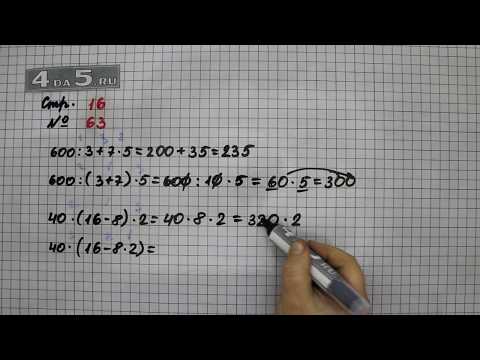 4DA5.RU
Стр. 16
№ 63
600:3+7·5=200+35=235
600:(3+7)·5=600:10·5=60·5=300
40·(16-8)·2=40·8·2=320·2
40·(16-8·2)=